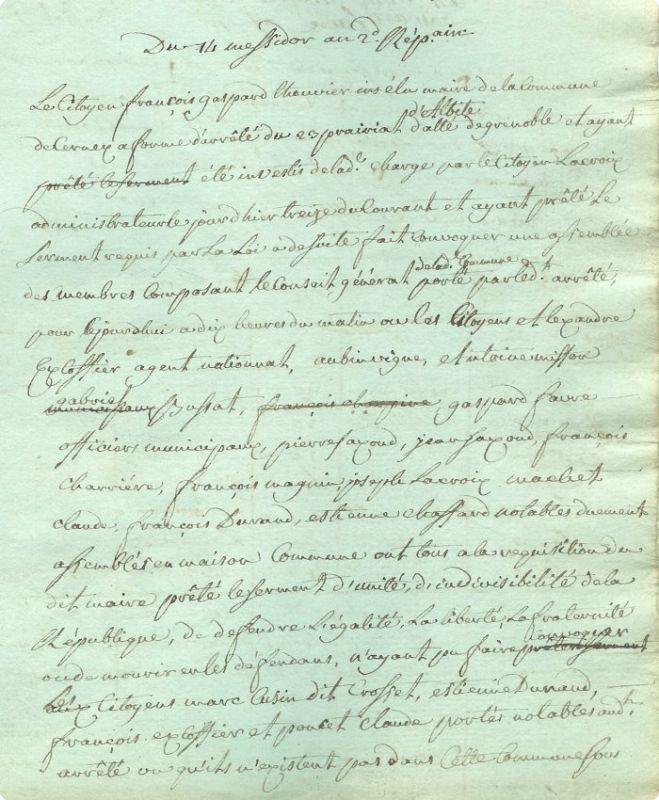 Du 14 messidor an 2d. Rép.ain
Le Citoyen françois gaspard lhouvier inséléu maire de la Commune
de Cernex a forme d'arrêté du 23 prairial d'Albite datté de grenoble et ayant
prêté le serment été investis de lad.e charge par le Citoyen Lacroix
administrateur le jour d'hier treize du Courant et ayant prêté Le
Serment requis par La Loi a de suite fait Convoquer une assemblée
des membres Composant le Conseil général de lad.e Commune porté par led.t arrêté,
pour lejourdhui a dix heures du matin ou les Citoyens et Alexandre
Excoffier agent nationnal, aubin vigne, et antoine misson
municipaux gabriel Bussat, françois champine, gaspard favre
officiers municipaux, pierre saxod, jean saxod, françois
Charriére, françois magnin joseph Lacroix maclet
claude, françois Durand, estienne Chaffard notables duement
assemblés en maison Commune ont tous a la requisition du
dit maire prêté le serment d'unité, d'indivisibilité de la
République, de defendre L'égalité, La liberté, La fraternité
ou de mourir en les défendans, n'ayant pu faire prêter serment convoquer
aux les Citoyens marc Cusin dit Crosset, estienne Durand,
françois excoffier et poncet claude portés notables aud.t
arrêté vu qu'ils n'existent pas dans Cette Commune sous